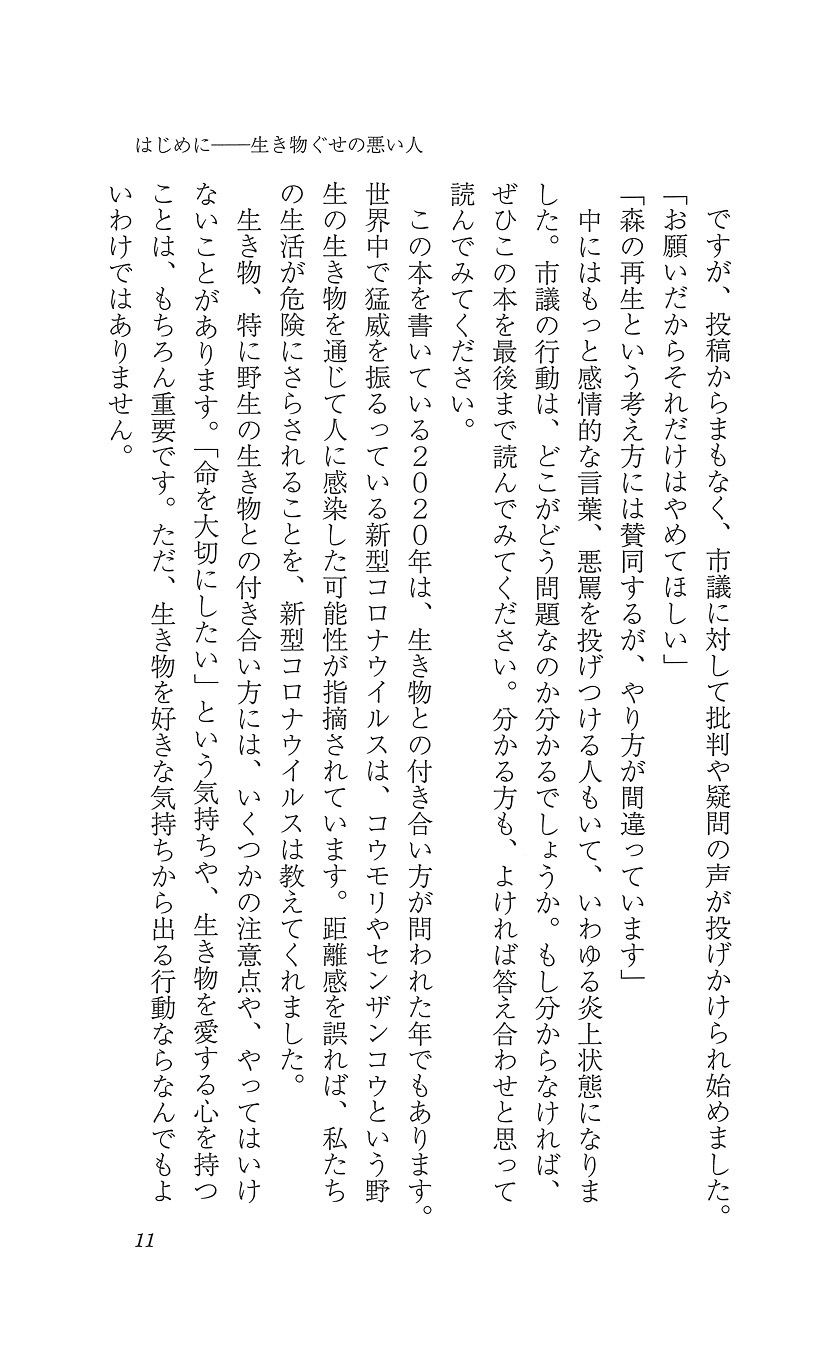 はじめに――生き物ぐせの悪い人
　ですが、投稿からまもなく、市議に対して批判や疑問の声が投げかけられ始めました。
「お願いだからそれだけはやめてほしい」
「森の再生という考え方には賛同するが、やり方が間違っています」
　中にはもっと感情的な言葉、悪罵を投げつける人もいて、いわゆる炎上状態になりま
した。市議の行動は、どこがどう問題なのか分かるでしょうか。もし分からなければ、
ぜひこの本を最後まで読んでみてください。分かる方も、よければ答え合わせと思って
読んでみてください。
　この本を書いている2020年は、生き物との付き合い方が問われた年でもあります。
世界中で猛威を振るっている新型コロナウイルスは、コウモリやセンザンコウという野
生の生き物を通じて人に感染した可能性が指摘されています。距離感を誤れば、私たち
の生活が危険にさらされることを、新型コロナウイルスは教えてくれました。
　生き物、特に野生の生き物との付き合い方には、いくつかの注意点や、やってはいけ
ないことがあります。「命を大切にしたい」という気持ちや、生き物を愛する心を持つ
ことは、もちろん重要です。ただ、生き物を好きな気持ちから出る行動ならなんでもよ
いわけではありません。
11